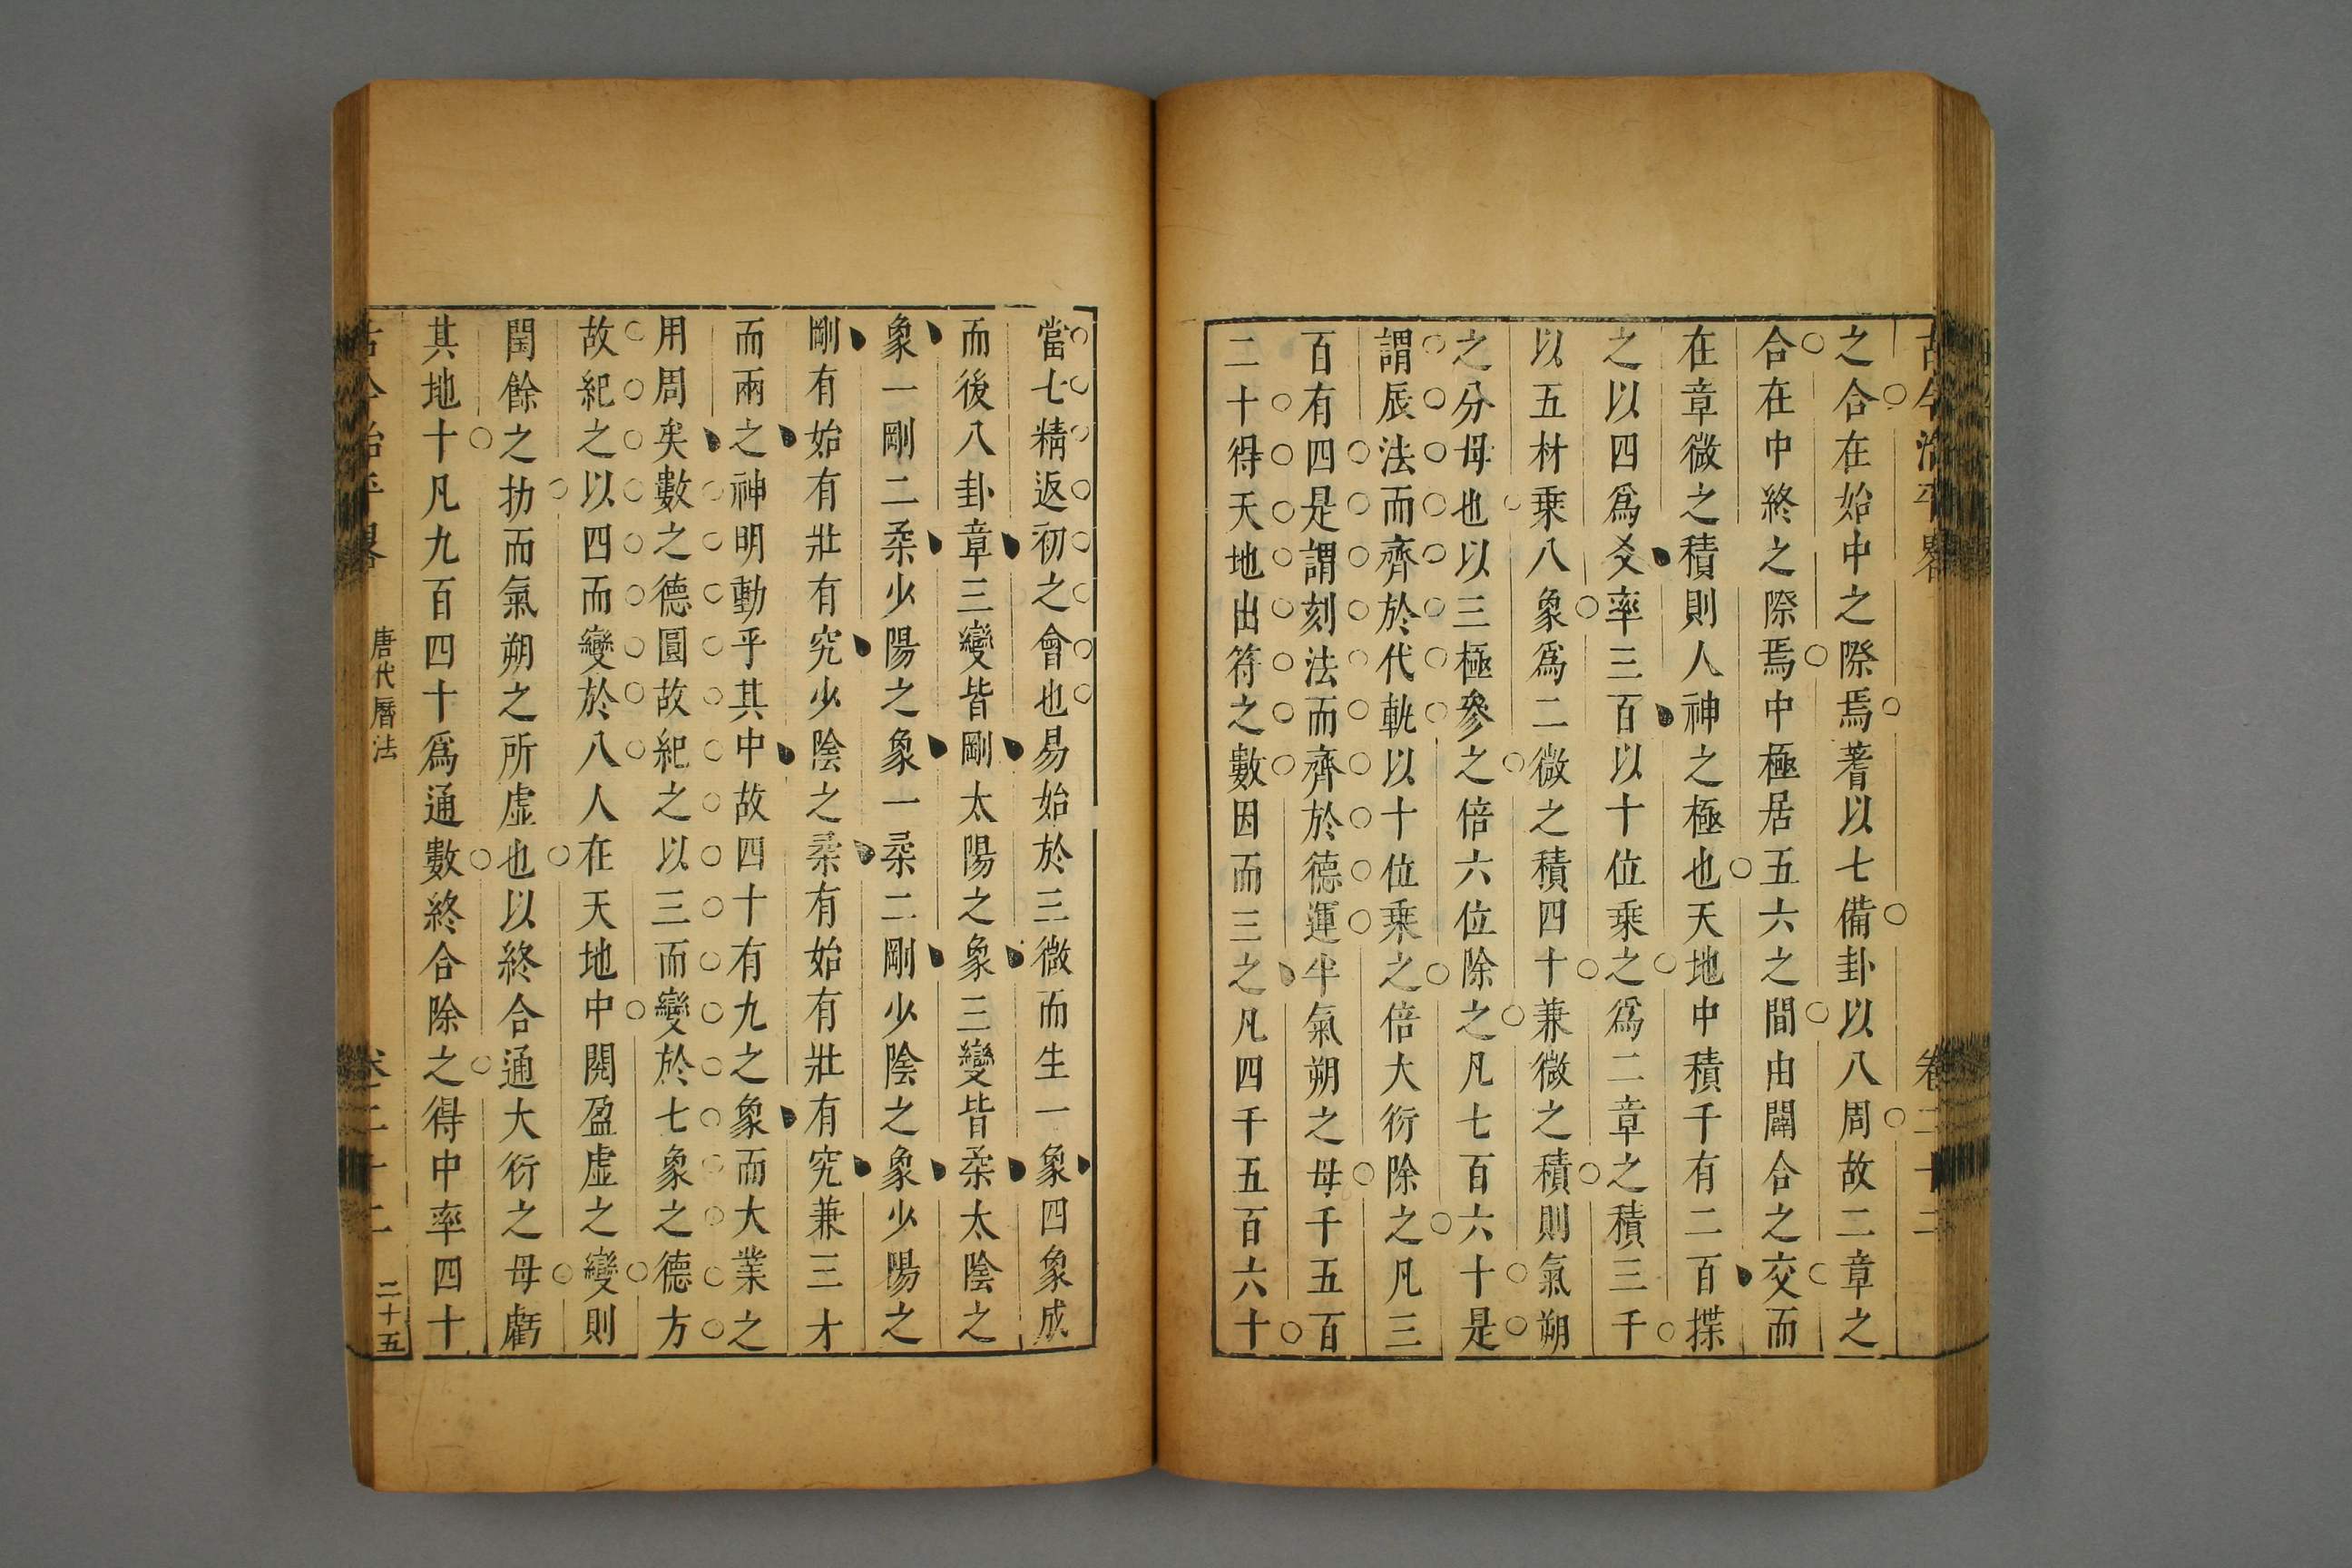 古今治平畧
卷二十二
之合在始中之際焉蓍以七備卦以八周故二章之
合在中終之際焉中極居五六之間由闢合之交而
在章微之積則人神之極也天地中積千有二百揲
之以四爲爻率三百以十位乗之爲二章之積三千
以五材乗八象爲二微之積四十兼微之積則氣朔
之分母也以三極參之倍六位除之凡七百六十是
謂辰法而齊於代軌以十位乗之倍大衍除之凡三
百有四是謂刻法而齊於德運半氣朔之母千五百
二十得天地出符之數因而三之凡四千五百六十
當七精返初之會也易始於三微而生一象四象成
而後八卦章三變皆剛太陽之象三變皆柔太陰之
象一剛二柔少陽之象一柔二剛少陰之象少陽之
剛有始有壯有究少陰之柔有始有壯有究兼三才
而兩之神明動乎其中故四十有九之象而大業之
用周矣數之德圓故紀之以三而變於七象之德方
故紀之以四而變於八人在天地中閱盈虚之變則
閏餘之扐而氣朔之所虚也以終合通大衍之母虧
其地十凡九百四十爲通數終合除之得中率四十
古今治平畧
唐代曆法
卷二十二
二十五